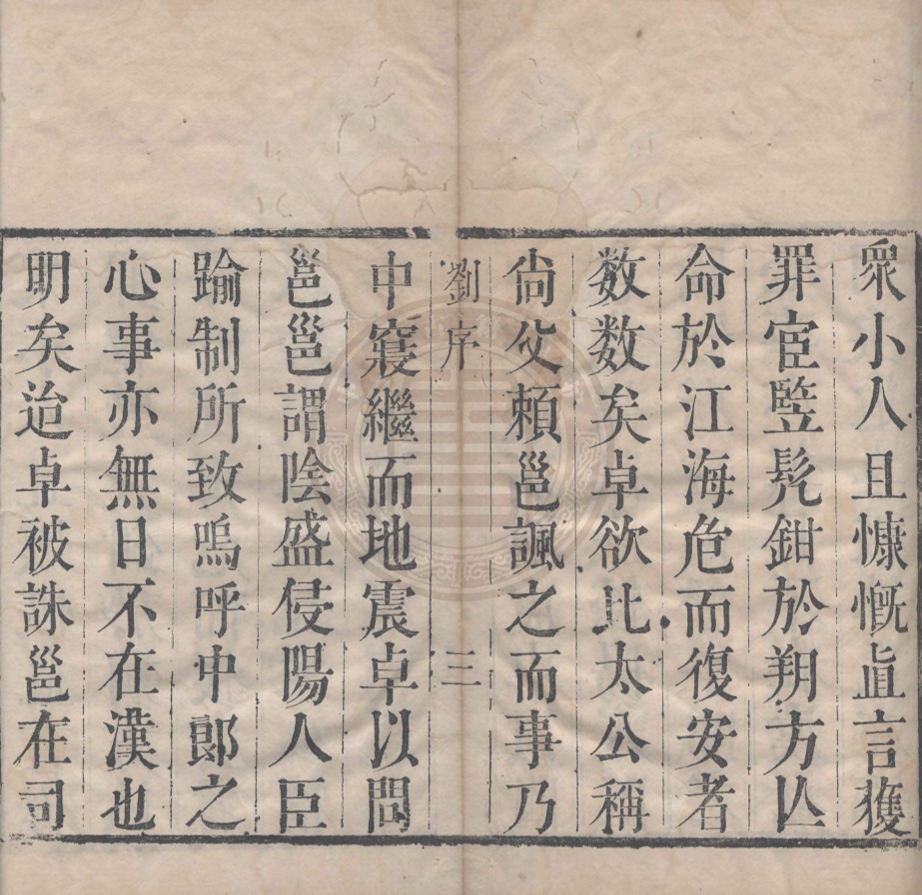 衆小人且慷慨直言獲
罪宦竪髠鉗於朔方亾
命於江海危而復安者
数数矣卓欲比太公稱
尙父頼邕諷之而事乃
劉序 三
中寢繼而地震卓以問
邕邕謂陰盛侵陽人臣
踰制所致嗚呼中郞之
心事亦無日不在漢也
明矣迨卓被誅邕在司